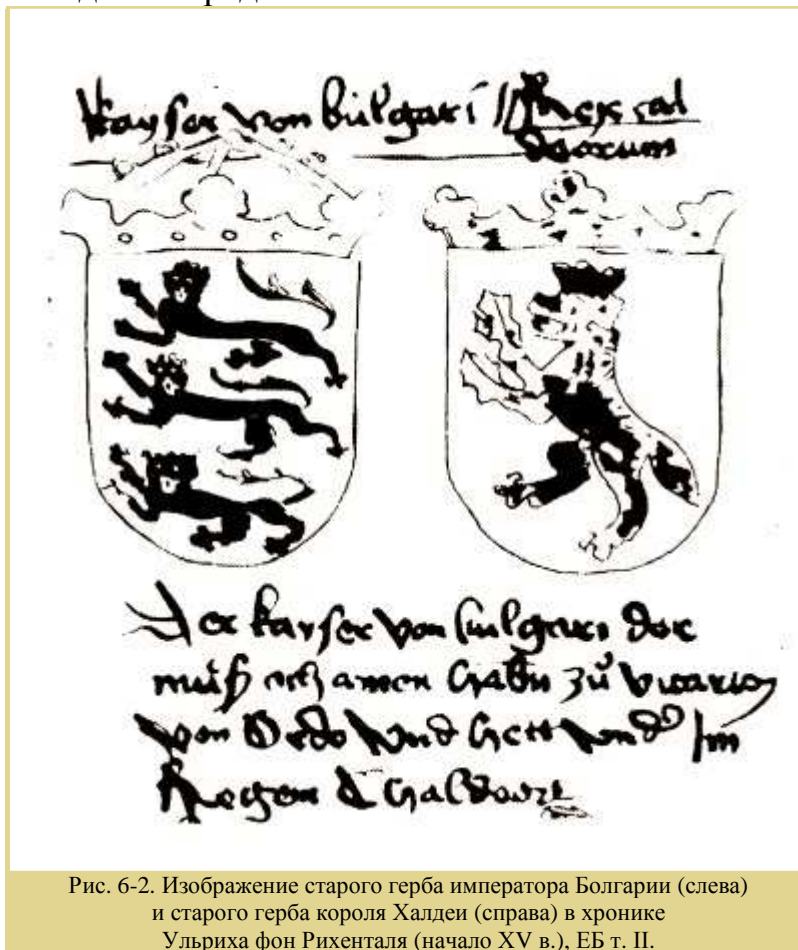 kayser von bulgari Rex cal
deorum
Der kayser von bulgari der
muß och amen habn zů vicario
von Ordo vnd hett vnd Im
Regem d Chaldeorum
Рис. 6-2. Изображение старого герба императора Болгарии (слева)
и старого герба короля Халдеи (справа) в хронике
Ульриха фон Рихенталя (начало XV в.), ЕБ т. II.